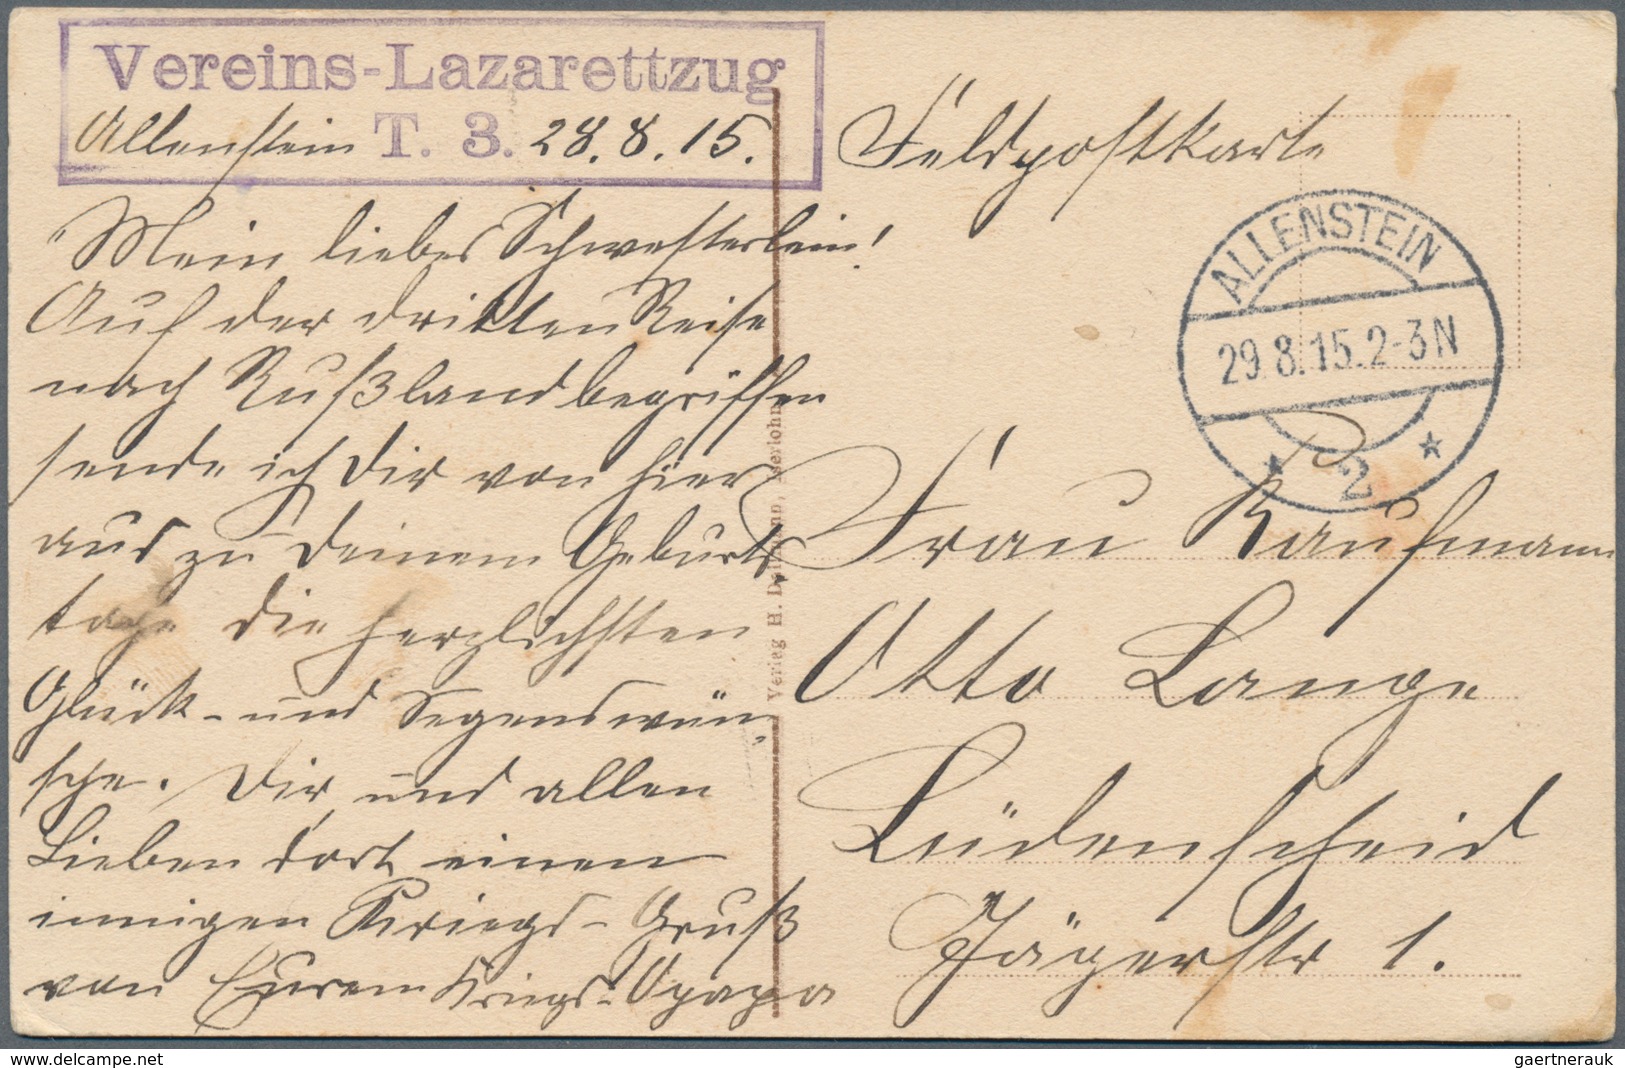 Vereins-Lazarettzug
T. 3.
Allenstein 28.8.15.
Mein liebes Schwesterlein!
Auf der dritten Reise
nach Rußland begriffen
sende ich Dir von hier
aus zu Deinem Geburts
tage die herzlichsten
Glück- und Segenswün
sche. Dir und allen
Lieben dort einen
innigen Kriegs-Gruß
von Eurem Kriegs-Opapa
Verlag H. Iserlohn
Feldpostkarte
ALLENSTEIN
29.8.15.2-3N
* 2 *
Frau Kaufmann
Otto Lange
Lüdenscheid
Jägerstr 1.
delcampe.net
gaertnerauk